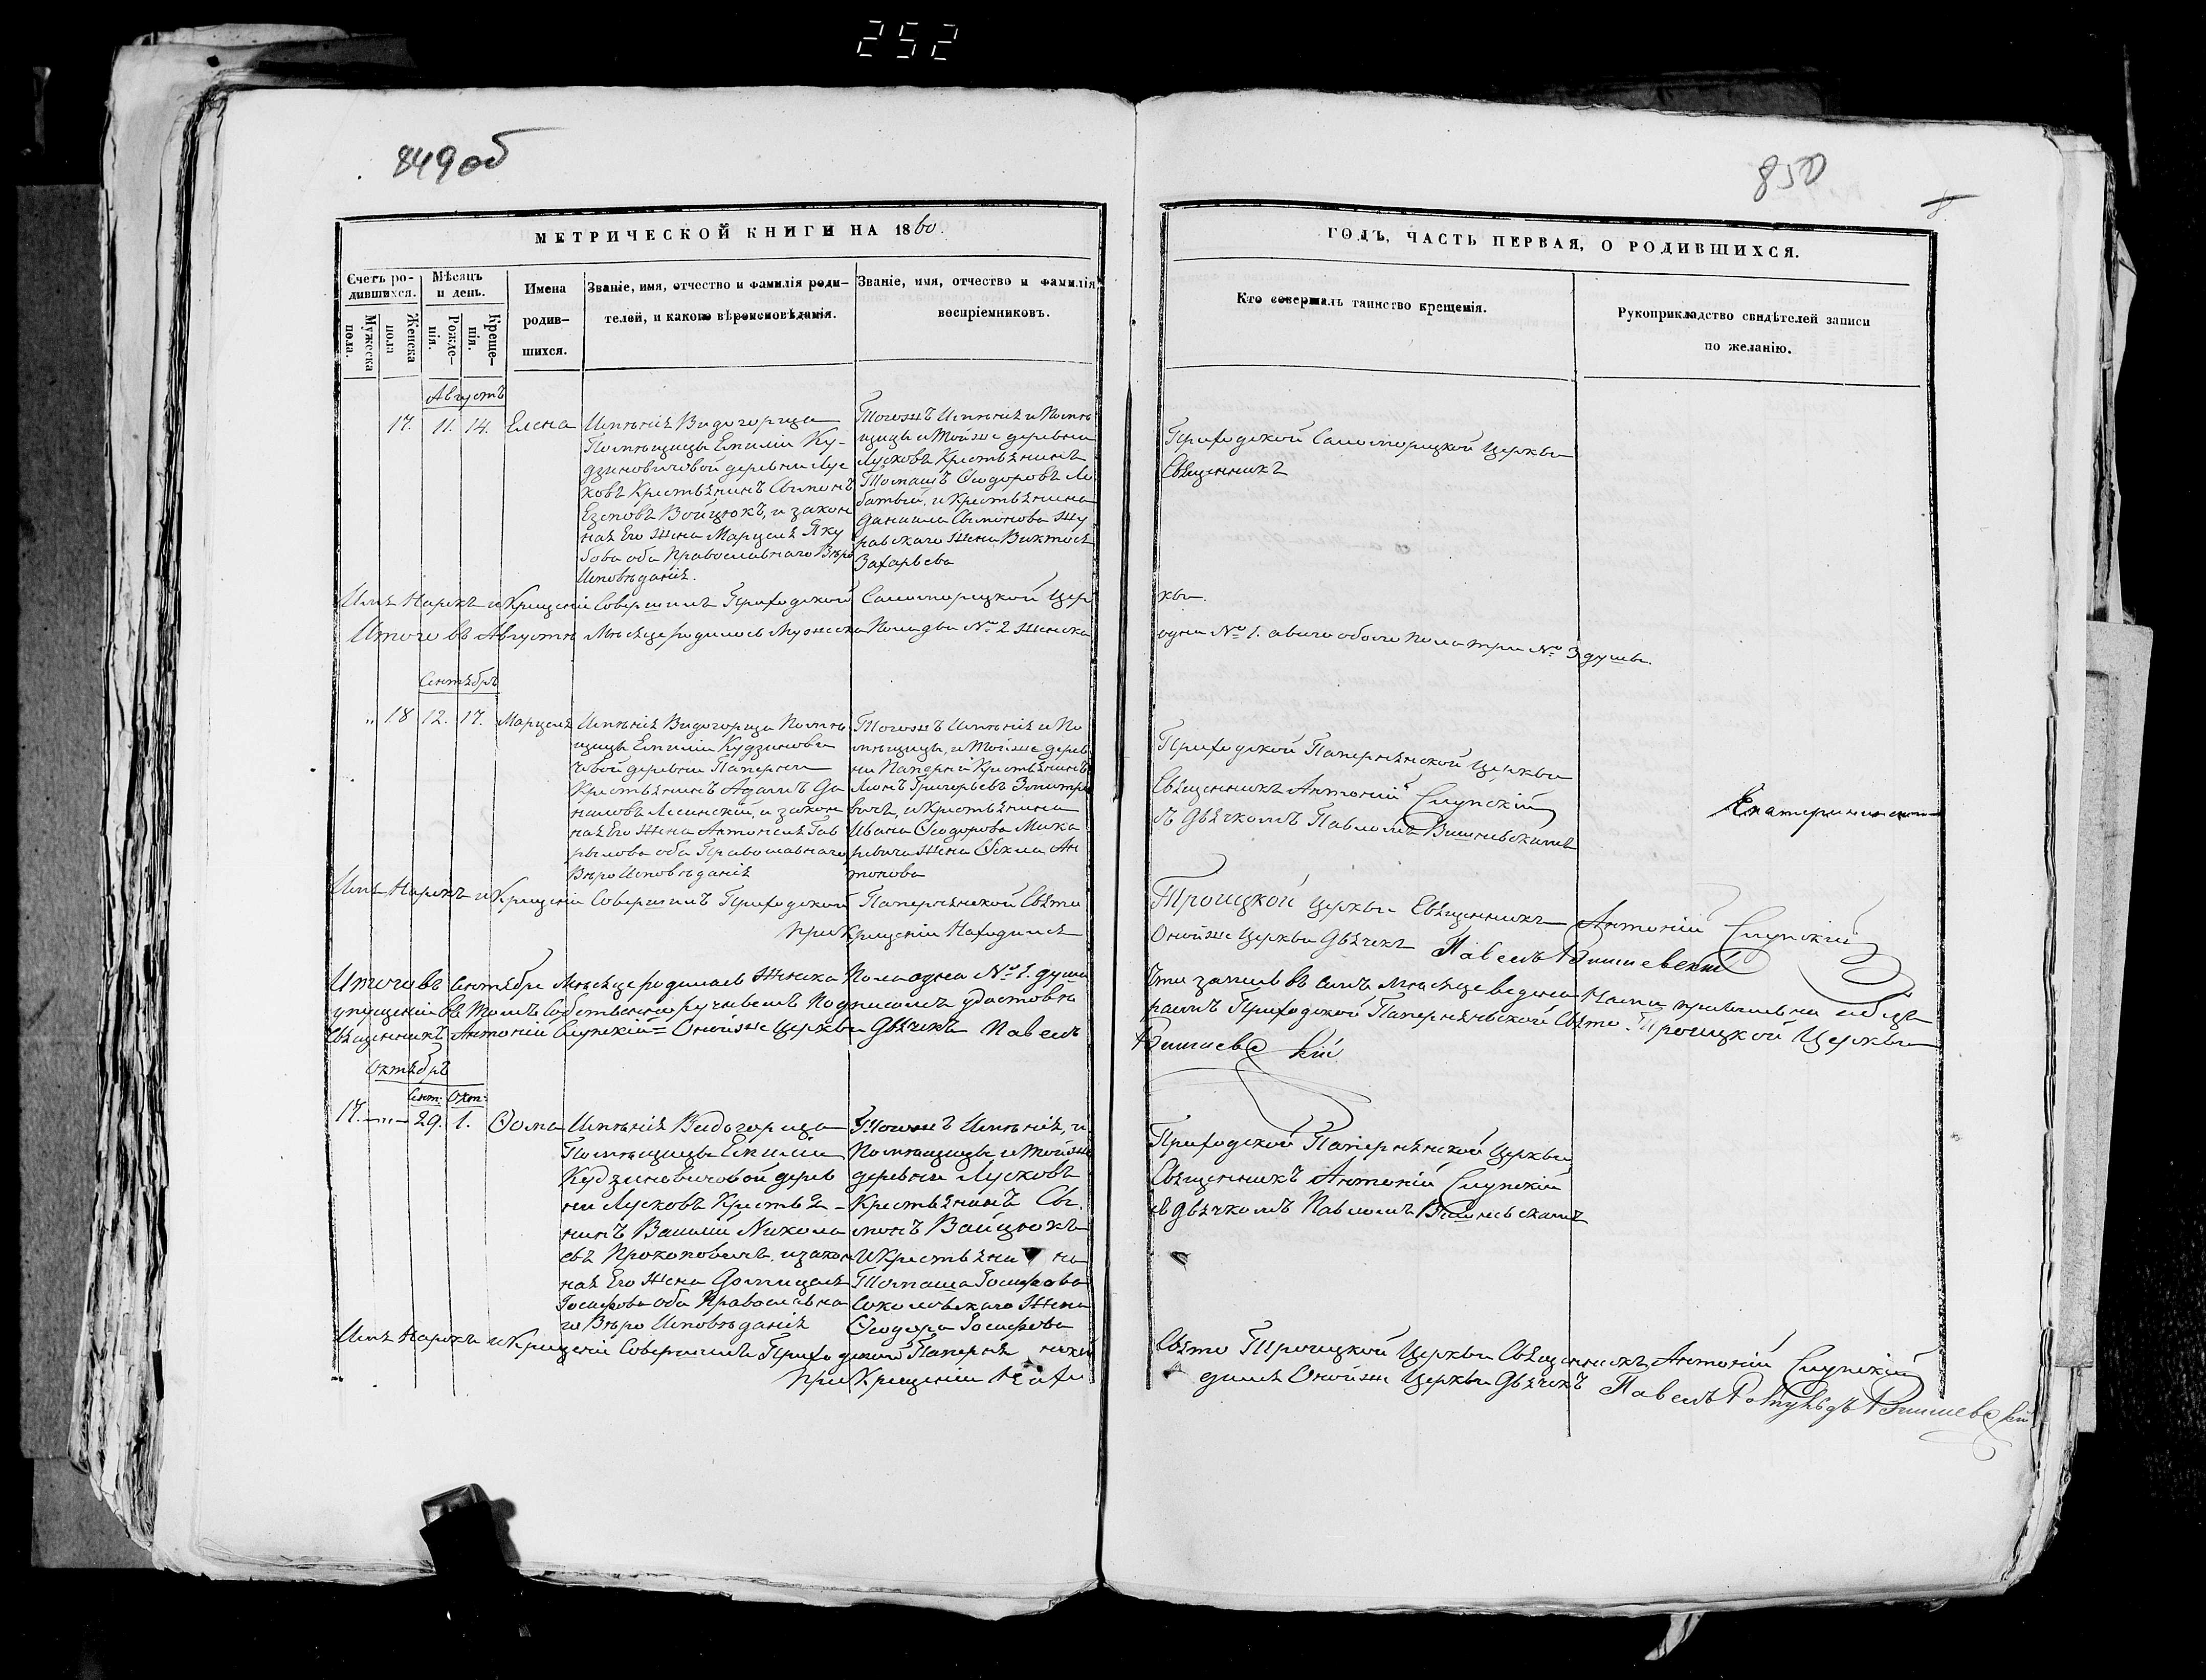 252
849 об
850
МЕТРИЧЕСКОЙ КНИГИ НА 1860.
ГОДЪ, ЧАСТЬ ПЕРВАЯ, О РОДИВШИХСЯ.
Счетъ ро-
дившихся.
Мужеска
пола.
Женска
пола
Мѣсяцъ
и день.
Рожде-
нія.
Креще-
нія.
Имена
родив-
шихся.
Званіе, имя, отчество и фамилія роди-
телей, и какого вѣроисповѣданія.
Званіе, имя, отчество и фамилія
воспріемниковъ.
Кто совершалъ таинство крещенія.
Рукоприкладство свидѣтелей записи
по желанію.
Августъ
17. 11. 14. Елена
Имѣнія Видогорща
Помѣщицы Емиліи Ку-
дзиновичовой деревни Лус
ковъ Крестьянинъ Сымонъ
Езеповъ Войцюкъ, и закон
ная Его Жена Марцеля Яку
бова оба Православнаго Вѣро
Исповѣданія.
Тогожъ Имѣнія и Помѣ
щицы и Тойже деревни
Лусковъ Крестьянинъ
Томашъ Ѳеодоровъ Ло
батый, и Крестьянина
Данила Сымонова Жу
равскаго Жена Виктося
Захарьева
Приходской Самоторицкой Церкви
Священникъ
Имя Нарекъ и Крещеніе Совершилъ Приходской Самоторицкой Цер
кви.
Итого въ Августѣ Мѣсяце родилось Мужска Пола два № 2 Женска
одна № 1. а всего обоего пола три № 3 души.
Сентябрь
" 18 12. 17. Марцеля
Имѣнія Видогорща Помѣ
щицы Емиліи Кудзинови
човой деревни Паперни
Крестьянинъ Адамъ Да
ниловъ Лесинскій, и закон
ная Его Жена Антонеля Гав
рылова оба Православнаго
Вѣро Исповѣданія
Тогожъ Имѣнія и По
мѣщицы, и Тойже дерев
ни Паперни Крестьянинъ
Ліонъ Григорьевъ Змитро
вичъ, и Крестьянина
Ивана Ѳеодорова Мака
ревича Жена Ѳекла Ан
тонова
Приходской Папернянской Церкви
Священникъ Антоній Слупскій
съ Дьячкомъ Павломъ Вишневскимъ
Имя Нарекъ и Крещеніе Совершилъ Приходской Папернянской Свято
Троицкой Церкви Священникъ Антоній Слупскій
При Крещеніи Находился
Оной же Церкви Дьячекъ Павелъ Вишневскій
Итого въ Сентябрѣ Мѣсяце родилась Женска Пола одна № 1. душа
Что запись въ семъ Мѣсяце ведена Нами правильно и безъ
упущеній въ Томъ Собственноручнымъ Подписомъ удостовѣ
раемъ Приходской Папернянской Свято-Троицкой Церкви
Священникъ Антоній Слупскій = Оной же Церкви Дьячекъ Павелъ
Вишневскій
Октябрь
Сент: Окт:
17. " 29. 1. Ѳома
Имѣнія Видогорща
Помѣщицы Емиліи
Кудзиновичовой дерев
ни Лусковъ Крестья-
нинъ Василій Никола
евъ Прокоповичъ, и закон
ная Его Жена Домицеля
Іосифова оба Православна
го Вѣро Исповѣданія
Тогожъ Имѣнія, и
Помѣщицы и Тойже
деревни Лусковъ
Крестьянинъ Сы-
монъ Войцюкъ
и Крестьянина
Томаша Іосифова
Соколовскаго Жена
Ѳеодора Іосифова
Приходской Папернянской Церкви
Священникъ Антоній Слупскій
съ Дьячкомъ Павломъ Вишневскимъ
Имя Нарекъ и Крещеніе Совершилъ Приходской Папернянской
Свято Троицкой Церкви Священникъ Антоній Слупскій
При Крещеніи Нахо
дился Оной же Церкви Дьячекъ Павелъ Вишневскій